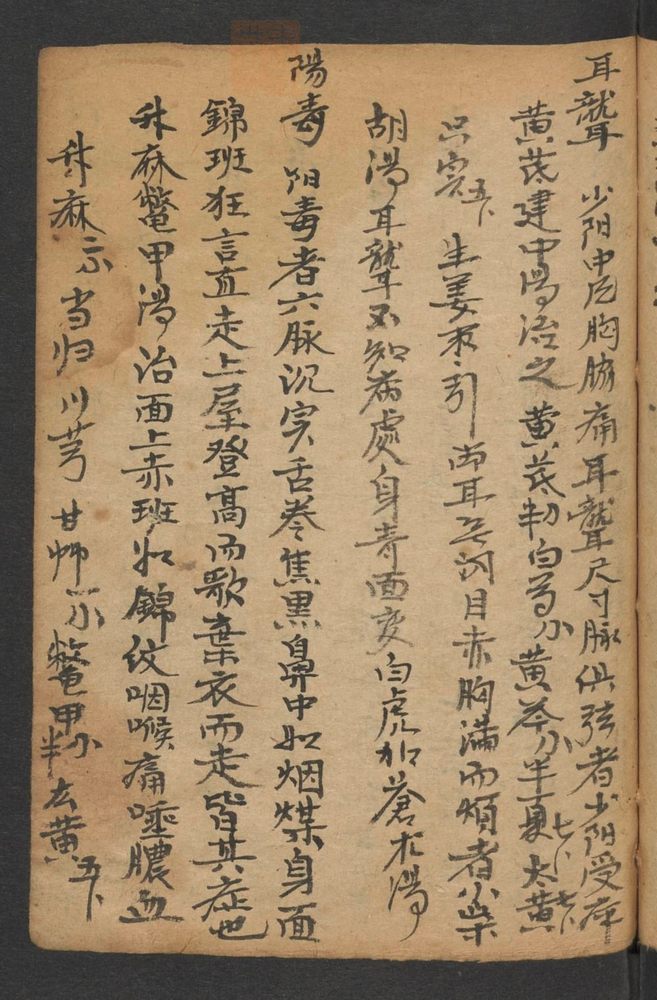 耳聾 少阳中风胸脇痛耳聾尺寸脉俱弦者少阳受病
黄茋建中湯治之 黄茋 白芍 黄芩 半夏 大黄
只实 五卜 生姜枣引 两耳无闻目赤胸满而烦者小柴
胡湯耳聾不知病處身青面变白虎加蒼术湯
陽毒 阳毒者六脉沉实舌卷焦黑鼻中如烟煤身面
錦班狂言直走上屋登高而歌棄衣而走皆其症也
升麻鱉甲湯治面上赤班如錦纹咽喉痛唾膿血
升麻 当归 川芎 甘艸 鱉甲 大黄 五卜